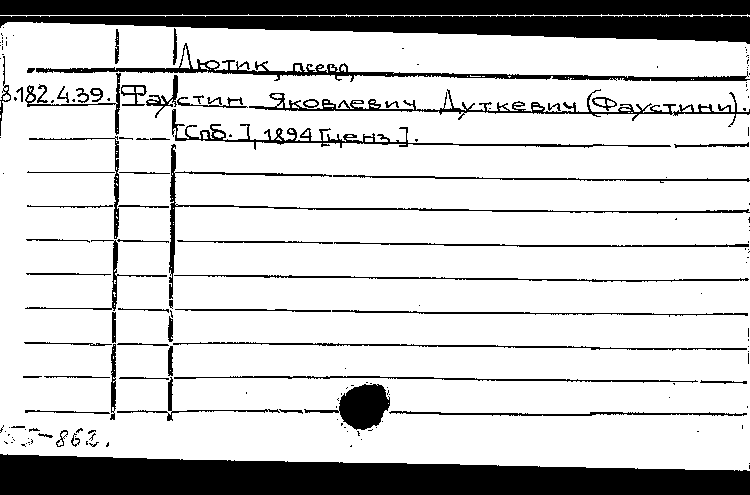 Лютик, псевд,
8.182.4.39. Фаустин Яковлевич Дуткевич (Фаустини).
[Спб.], 1894 [ценз.].
55-862.